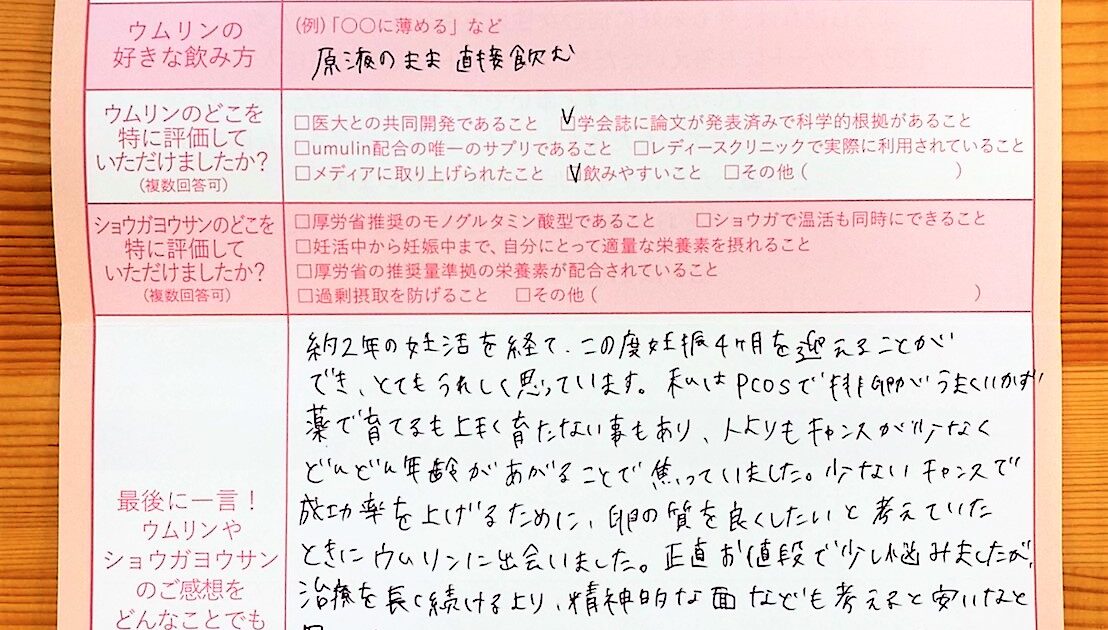 ウムリンの
好きな飲み方
(例)「〇〇に薄める」など
原液のまま 直接飲む
ウムリンのどこを
特に評価して
いただけましたか?
(複数回答可)
□医大との共同開発であること ☑学会誌に論文が発表済みで科学的根拠があること
□umulin配合の唯一のサプリであること □レディースクリニックで実際に利用されていること
□メディアに取り上げられたこと ☑飲みやすいこと □その他( )
ショウガヨウサンのどこを
特に評価して
いただけましたか?
(複数回答可)
□厚労省推奨のモノグルタミン酸型であること □ショウガで温活も同時にできること
□妊活中から妊娠中まで、自分にとって適量な栄養素を摂れること
□厚労省の推奨量準拠の栄養素が配合されていること
□過剰摂取を防げること □その他( )
最後に一言!
ウムリンや
ショウガヨウサン
のご感想を
どんなことでも
約2年の妊活を経て、この度妊娠4ヶ月を迎えることが
でき、とてもうれしく思っています。私はPCOSで排卵がうまくいかず
薬で育てるも上手く育たない事もあり、人よりもチャンスが少なく
どんどん年齢があがることで焦っていました。少ないチャンスで
成功率を上げるために、卵の質を良くしたいと考えていた
ときにウムリンに出会いました。正直お値段で少し悩みましたが、
治療を長く続けるより、精神的な面なども考えると安いなと